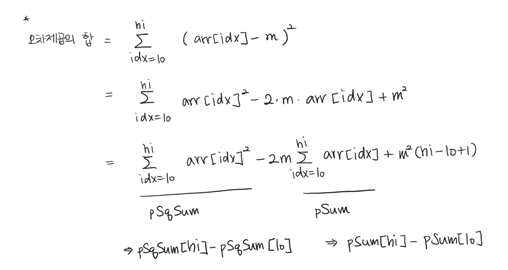 *
오차제곱의 합 = hi Σ idx=lo (arr[idx] - m)²
= hi Σ idx=lo arr[idx]² - 2·m·arr[idx] + m²
= hi Σ idx=lo arr[idx]² - 2m hi Σ idx=lo arr[idx] + m²(hi-lo+1)
pSqSum pSum
⇒ pSqSum[hi] - pSqSum[lo] ⇒ pSum[hi] - pSum[lo]